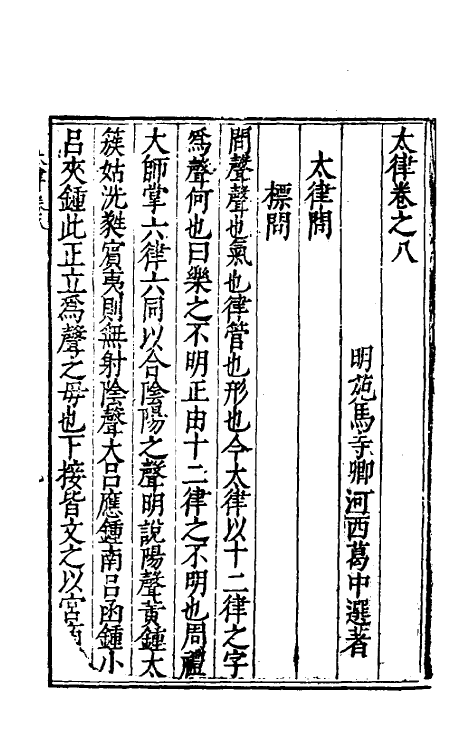 太律卷之八
明苑馬寺卿河西葛中選著
太律問
標問
問聲聲也氣也律管也形也今太律以十二律之字
為聲何也曰樂之不明正由十二律之不明也周禮
大師掌六律六同以合陰陽之聲明說陽聲黃鍾太
簇姑洗蕤賓夷則無射陰聲大呂應鍾南呂函鍾小
呂夾鍾此正立為聲之毋也下接皆文之以宮